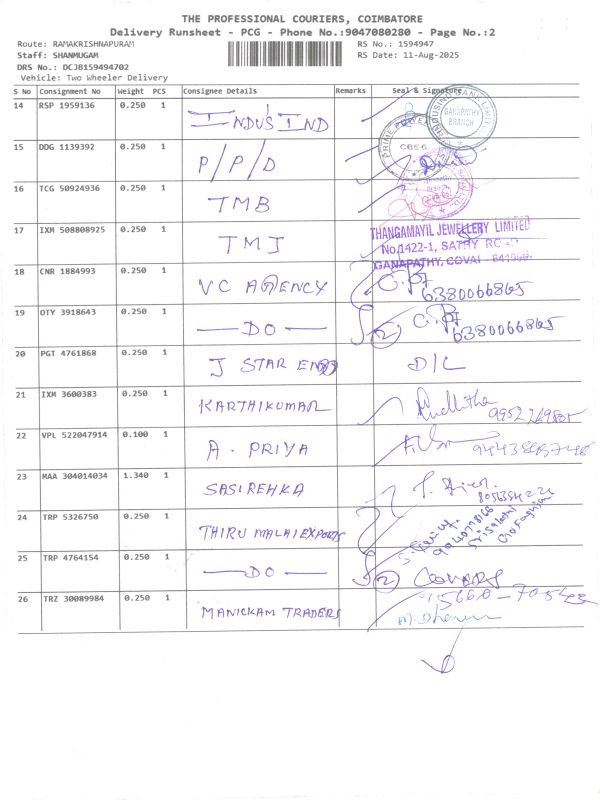 THE PROFESSIONAL COURIERS, COIMBATORE
Delivery Runsheet - PCG - Phone No.:9047080280 - Page No.:2
Route: RAMAKRISHNAPURAM
RS No.: 1594947
Staff: SHANMUGAM
RS Date: 11-Aug-2025
DRS No.: DCJB159494702
Vehicle: Two Wheeler Delivery
S No Consignment No Weight PCS Consignee Details Remarks Seal & Signature
14 RSP 1959136 0.250 1 INDUSIND
GANAPATHY BRANCH
15 DDG 1139392 0.250 1 P/P/D
PRIME POWER
CBE-6
16 TCG 50924936 0.250 1 TMB
17 IXM 508808925 0.250 1 TMJ
THANGAMAYIL JEWELLERY LIMITED
No.1422-1, SATHY ROAD
GANAPATHY, COVAI - 641006.
18 CNR 1884993 0.250 1 VC AGENCY
6380066865
19 OTY 3918643 0.250 1 — DO — 2
6380066865
20 PGT 4761868 0.250 1 J STAR D/L
21 IXM 3600383 0.250 1 KARTHIKUMAR
22 VPL 522047914 0.100 1 A. PRIYA
23 MAA 304014034 1.340 1 SASIREHKA
24 TRP 5326750 0.250 1 THIRUMALAI EXPORTS
25 TRP 4764154 0.250 1 — DO — 2
26 TRZ 30089984 0.250 1 MANICKAM TRADERS